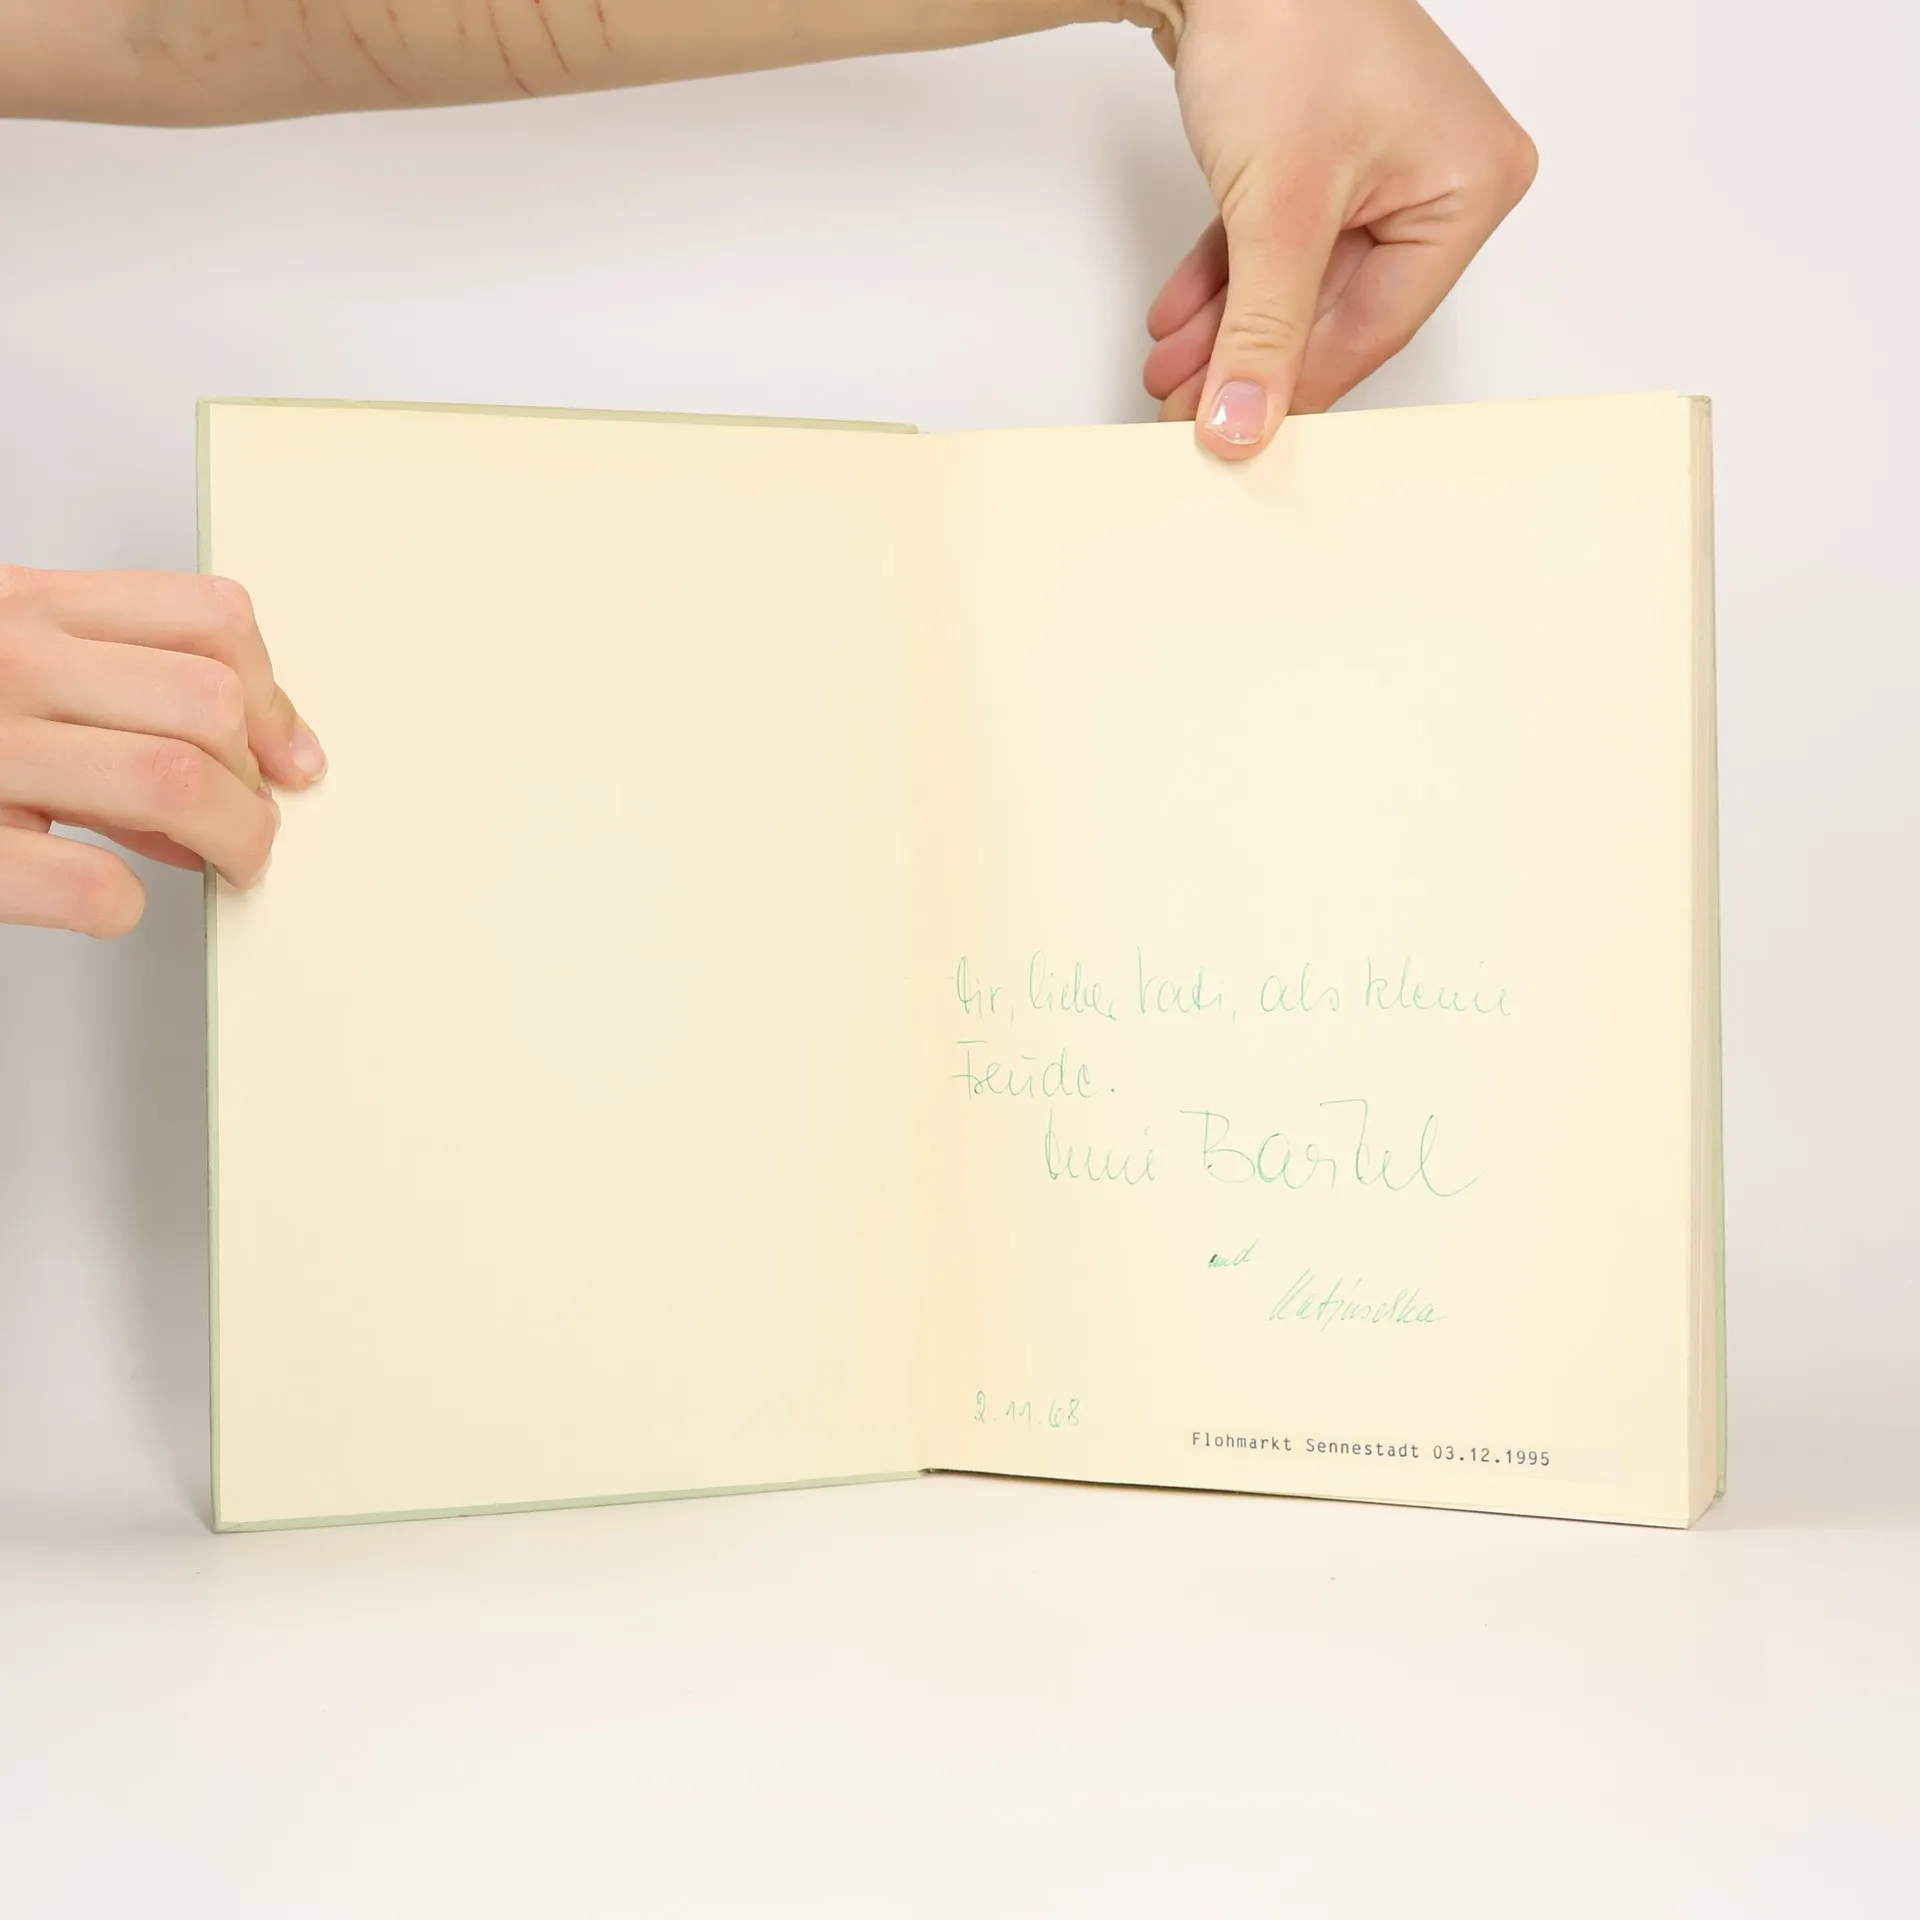 Dir, lieber Vati, als kleine
Freude.
Deine Bärbel
und
Katjuschka
2.11.68
Flohmarkt Sennestadt 03.12.1995